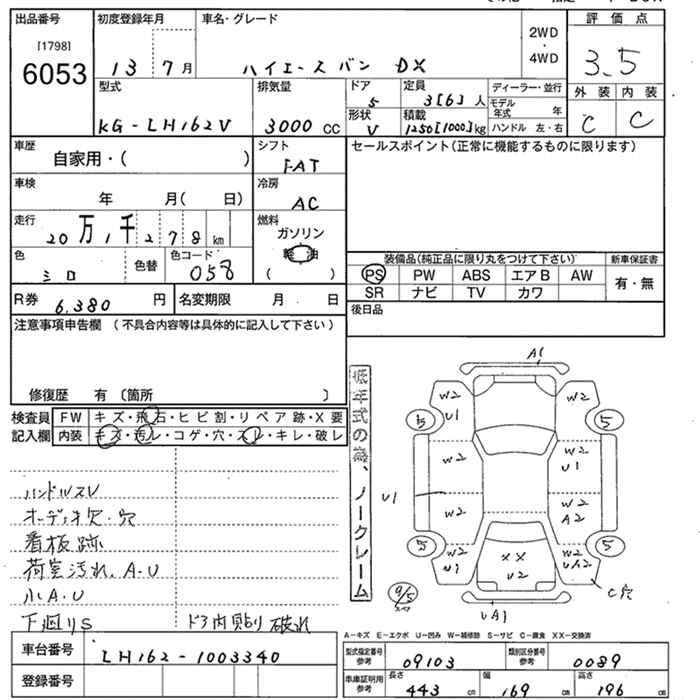 出品番号 初度登録年月 車名・グレード 2WD・4WD 評価点
[1798] 6053 13 7月 ハイエース バン DX 3.5
型式 排気量 ドア 5 定員 3[6]人 ディーラー・並行 外装 内装
KG-LH162V 3000cc 形状 V 積載 1250[1000]kg モデル年式 年 ハンドル 左・右 C C
車歴 自家用・( ) シフト FAT セールスポイント(正常に機能するものに限ります)
車検 年 月( 日) 冷房 AC
走行 20万1千278km 燃料 ガソリン 軽油 ( )
色 シロ 色替 色コード 058
装備品(純正品に限り丸をつけて下さい) 新車保証書
PS PW ABS エアB AW 有・無
SR ナビ TV カワ
R券 6,380円 名変期限 月 日 後日品
注意事項申告欄 (不具合内容等は具体的に記入して下さい)
修復歴 有 〔箇所 〕
検査員記入欄 FW キズ・飛石・ヒビ割・リペア跡・X要
内装 キズ・汚レ・コゲ・穴・スレ・キレ・破レ
ハンドルスレ
オーディオ欠・穴
看板跡
荷室汚れ、A・U
小A・U
下廻りS ドア内貼り破れ
低年式の為、ノークレーム
A1
W2 U1 W2
5 5
W2 W2 U1
U1 W2 W2 A2
5 5
W2 U1 XX U2 W2 UA2
C穴
スペア
UA1
A-キズ E-エクボ U-凹み W-補修跡 S-サビ C-腐食 XX-交換済
車台番号 LH162-1003340
登録番号
型式指定番号 参考 09103 類別区分番号 参考 0089
車庫証明用 参考 長さ 443cm 幅 169cm 高さ 196cm